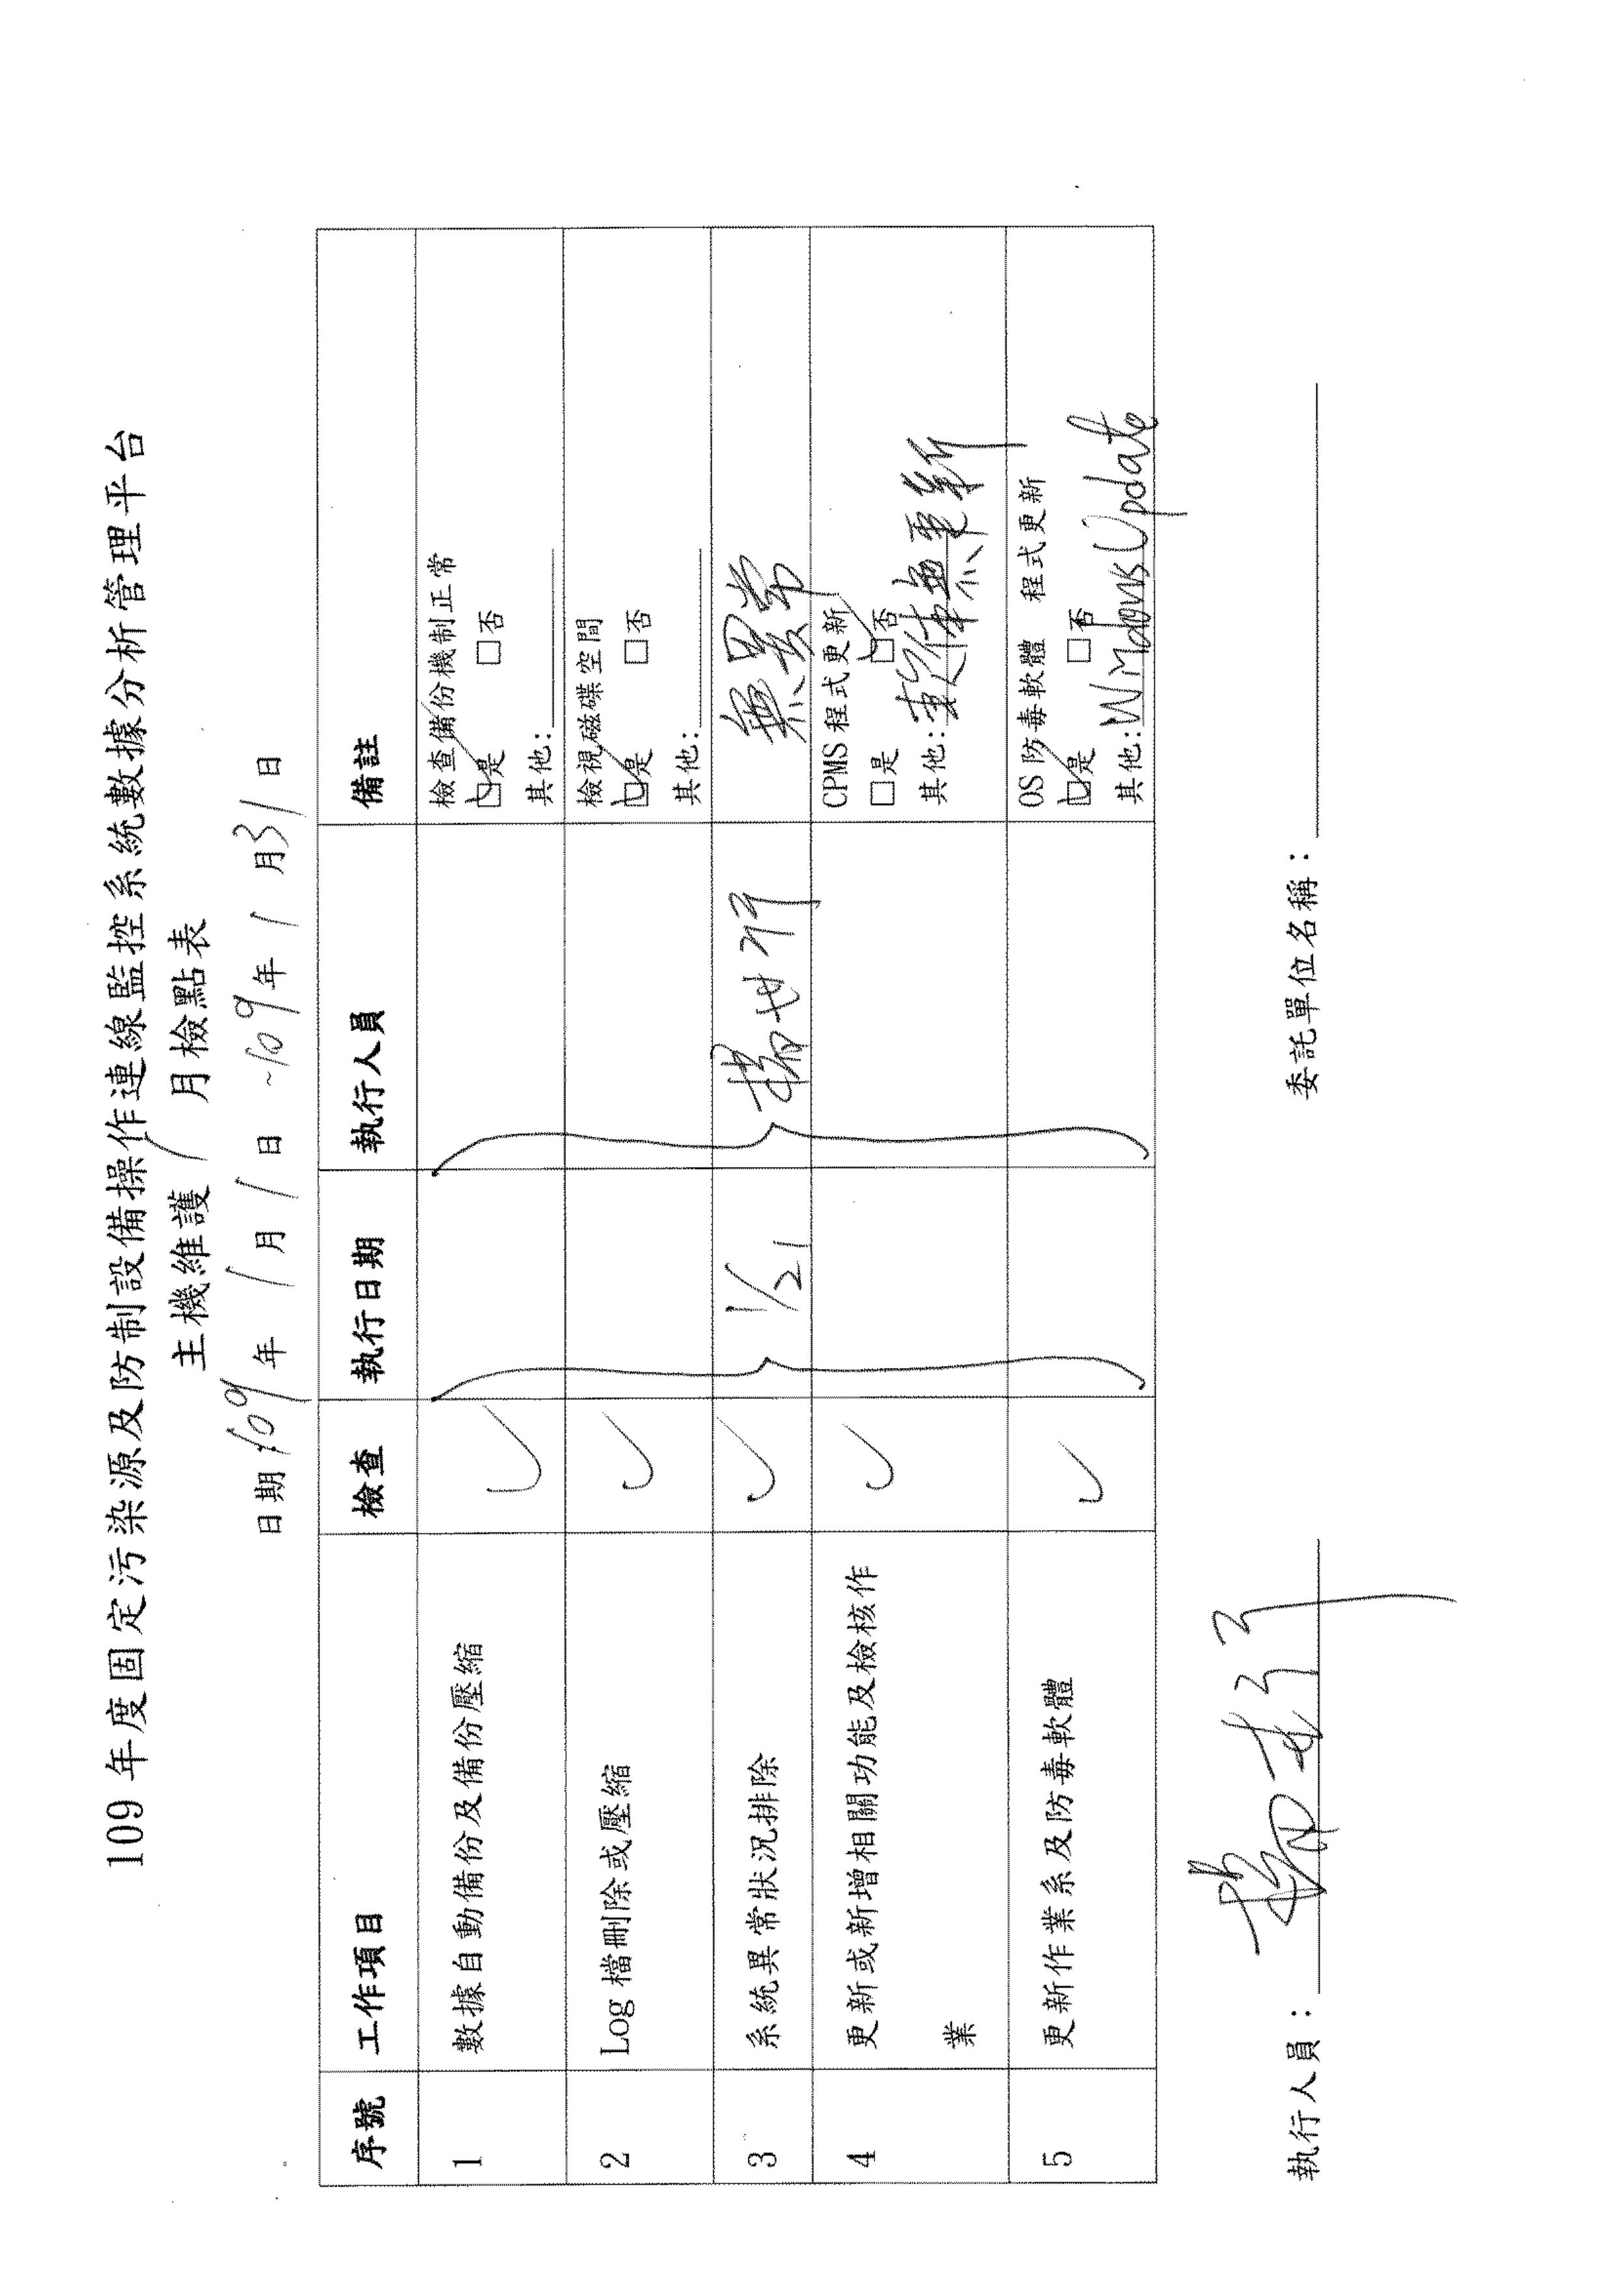 109 年度固定污染源及防制設備操作連線監控系統數據分析管理平台
主機維護 1 月檢點表
日期:109年 1月 1日 ~109年 1月31日
序號 工作項目 檢查 執行日期 執行人員 備註
1 數據自動備份及備份壓縮 ✓ 檢查備份機制正常
☑是 □否
其他:
2 Log 檔刪除或壓縮 ✓ 檢視磁碟空間
☑是 □否
其他:
3 系統異常狀況排除 ✓ 1/21 無異常
4 更新或新增相關功能及檢核作
業 ✓ CPMS 程式更新
□是 ☑否
其他:軟体無更新
5 更新作業系及防毒軟體 ✓ OS 防毒軟體 程式更新
☑是 □否
其他:Windows Update
執行人員:
委託單位名稱: